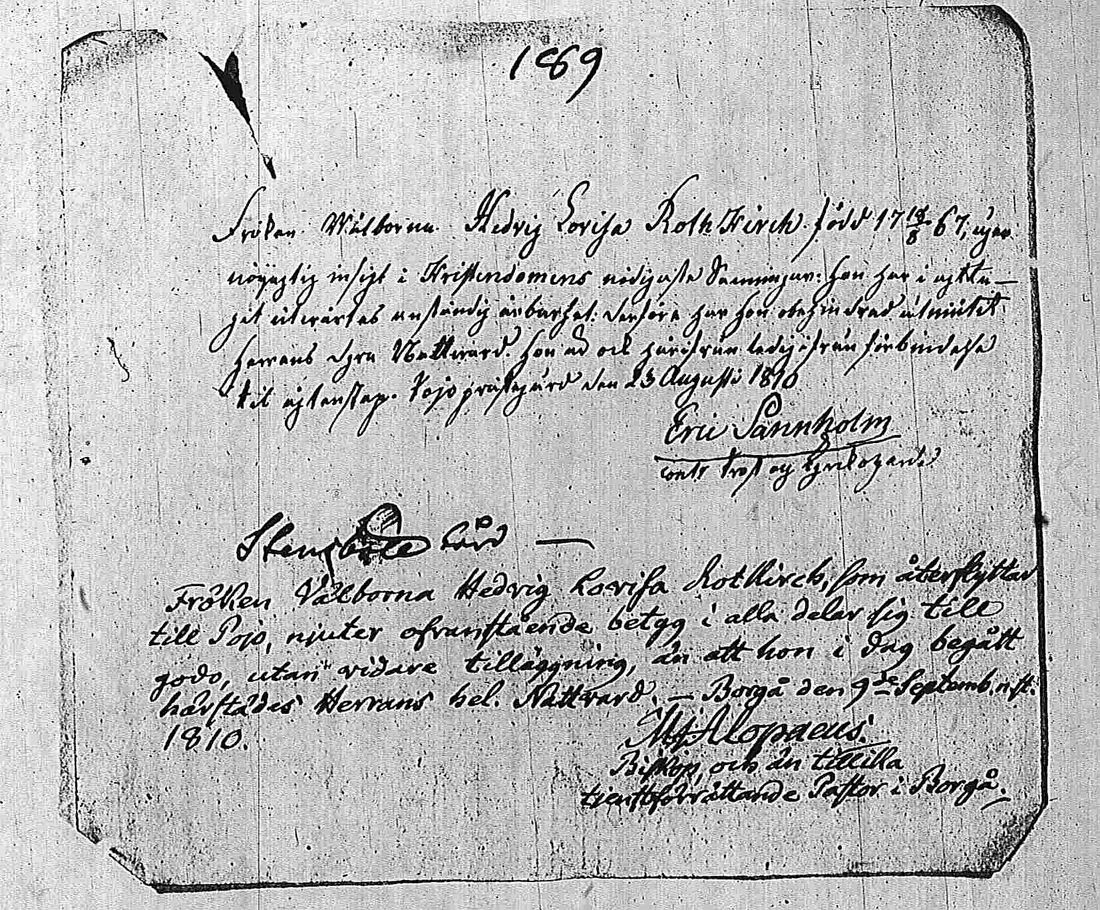 1869
Fröken Wälborna Hedvig Lovisa Rothkirch född 17 18/8 67, äger
nöyagtig insigt i Kristendomens nödigaste Sanningar: hon har i agtta-
git utwärtes anständig ärbarhet: derföre har hon obehindrad åtniutit
Herrans dyra Nattward. hon är ock härifrån ledig ifrån förbindelse
til ägtenskap. Pojo prästegård den 23 Augusti 1810
Eric Sannholm
contr Prost og Kyrkoherde
Fröken Välborna Hedvig Lovisa Rotkirch, som återflyttar
till Pojo, niuter ofvanstående betyg i alla delar sig till
godo, utan vidare tilläggning, än att hon i dag begått
härstädes Herrans hel. Nattvard. — Borgå den 9de Septemb. n. st.
1810.
M Alopaeus.
Biskop, och än tillilla
tienstförrättande Pastor i Borgå.